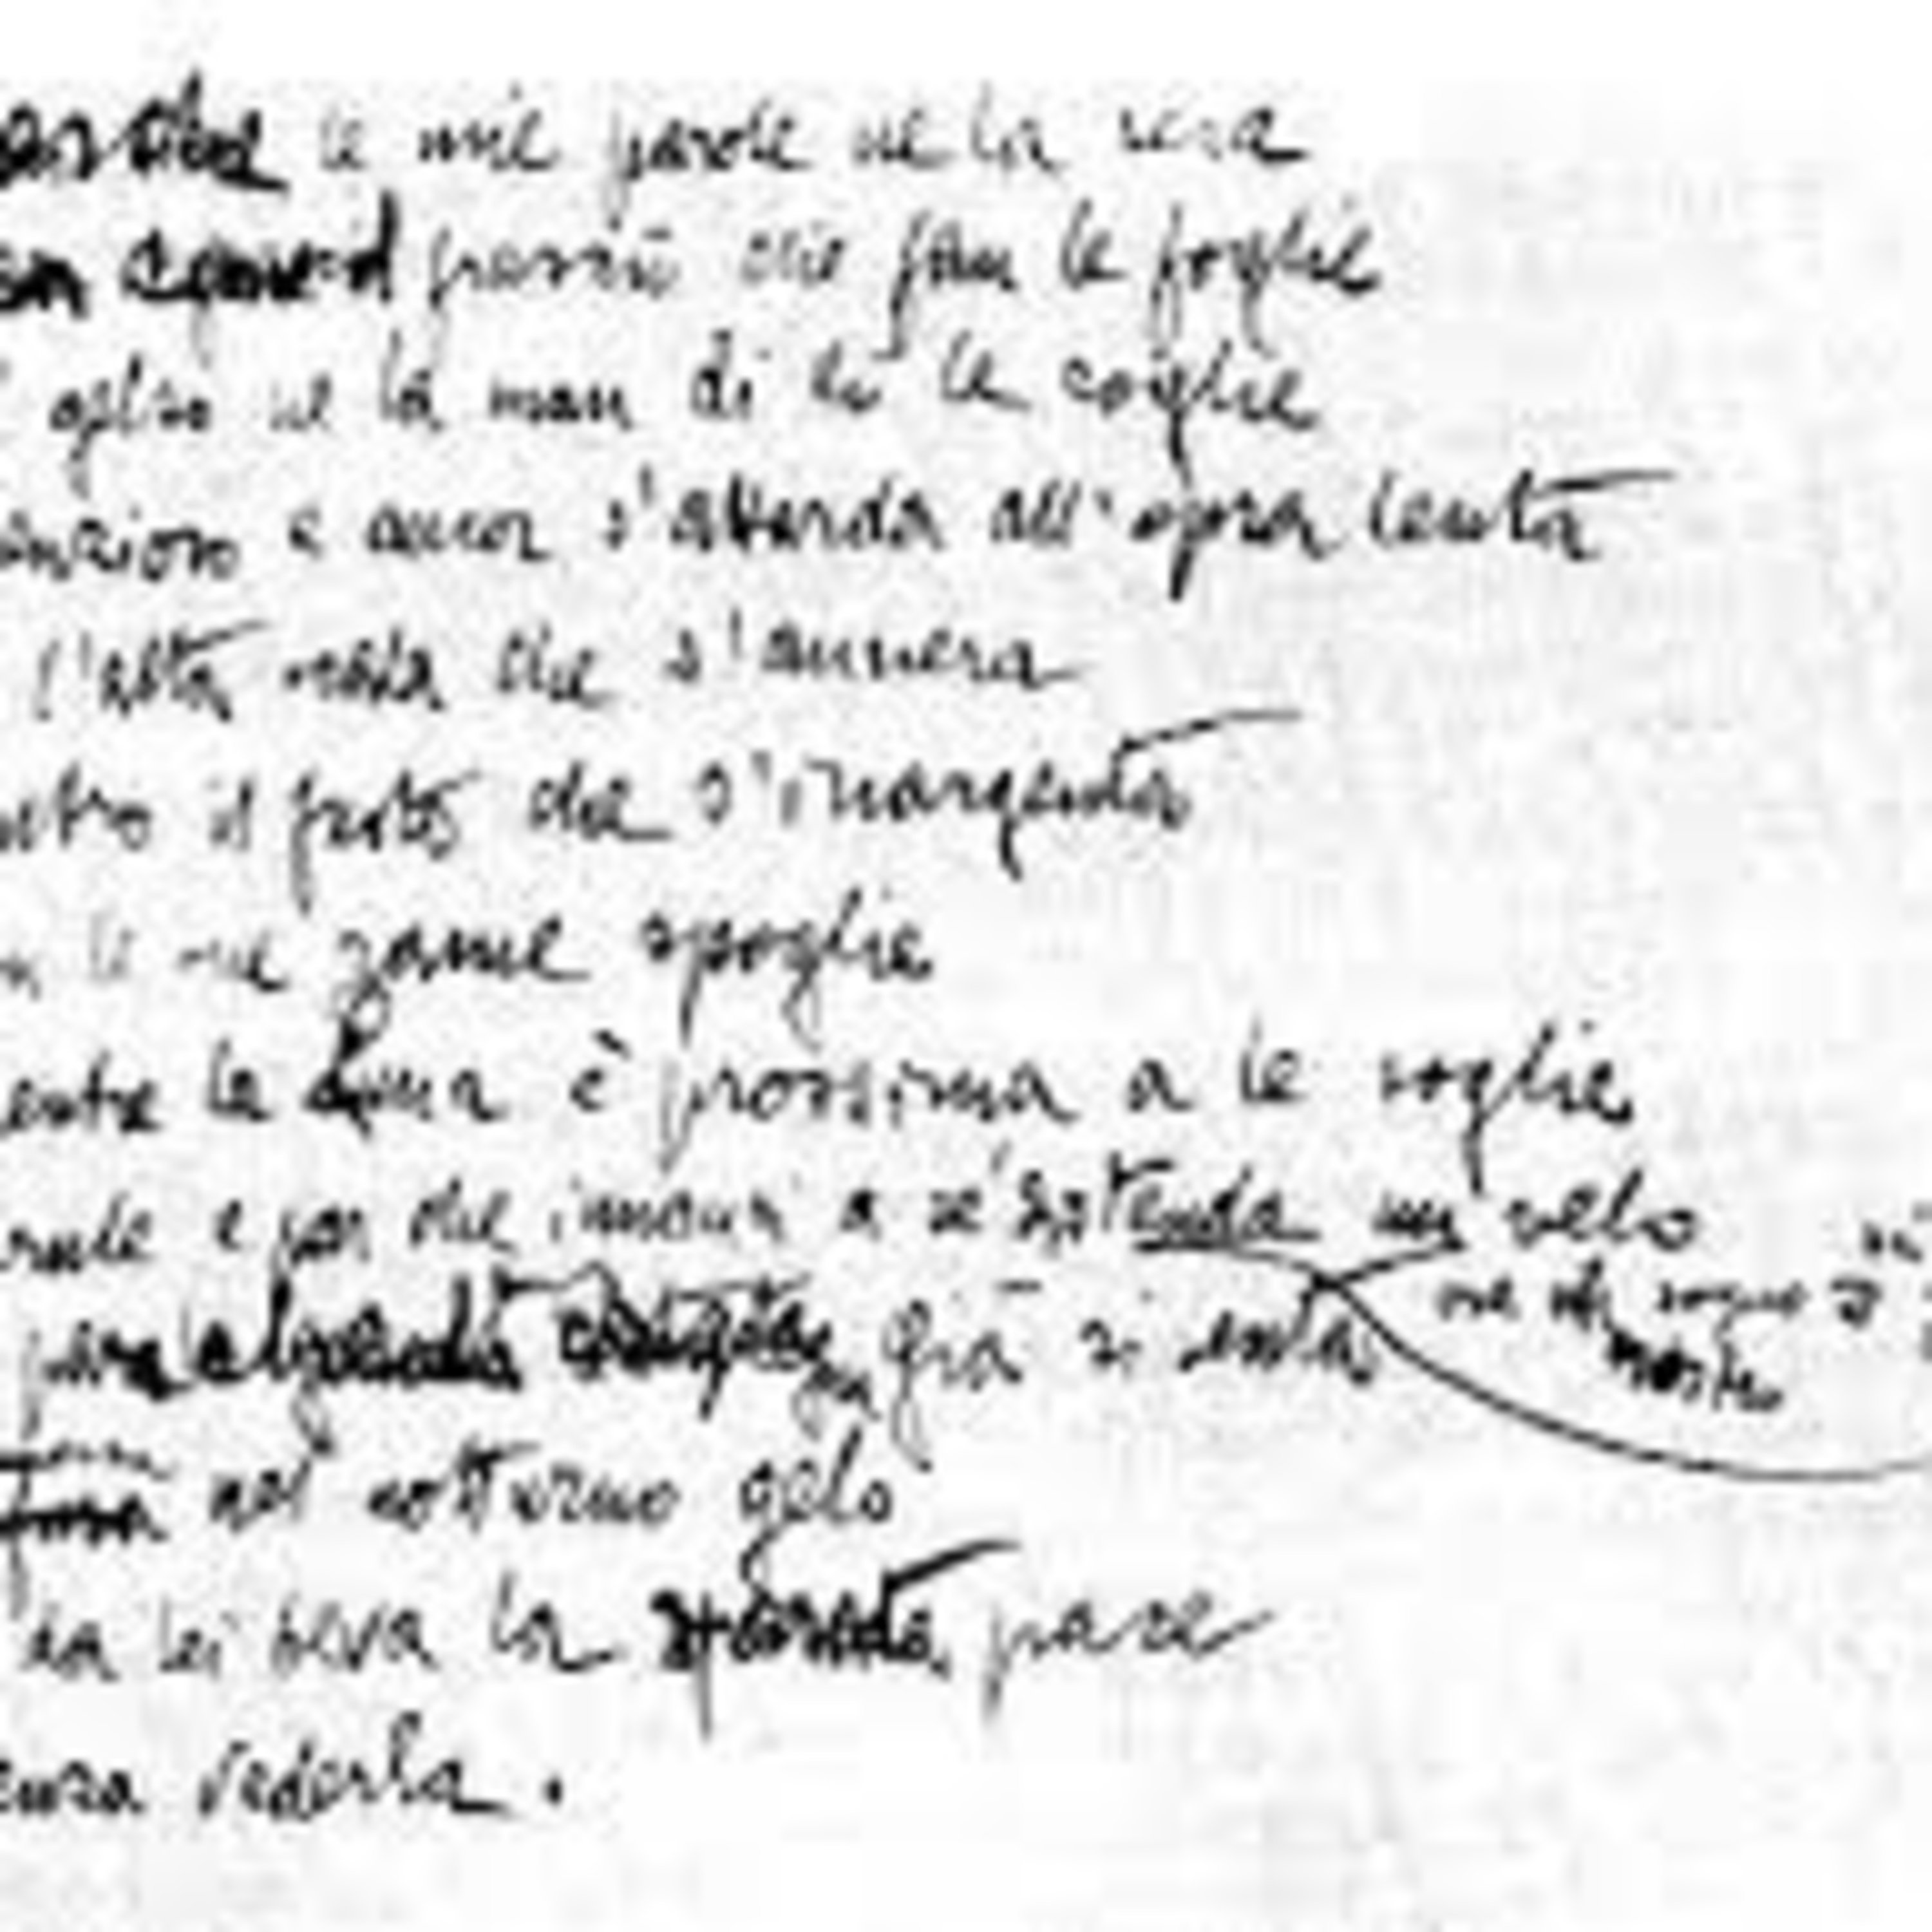 le mie parole ne la sera
fruscìo che fan le foglie
gelso ne la man di chi le coglie
enzioso e ancor s'attarda all'opra lenta
l'alta scala che s'annera
ntro il fusto che s'inargenta
le sue rame spoglie
entre la Luna è prossima a le soglie
rule e par che innanzi a sè distenda un velo
ove il sogno si
nostro
par che la campagna già si senta
nel notturno gelo
da lei beva la sperata pace
enza vederla.